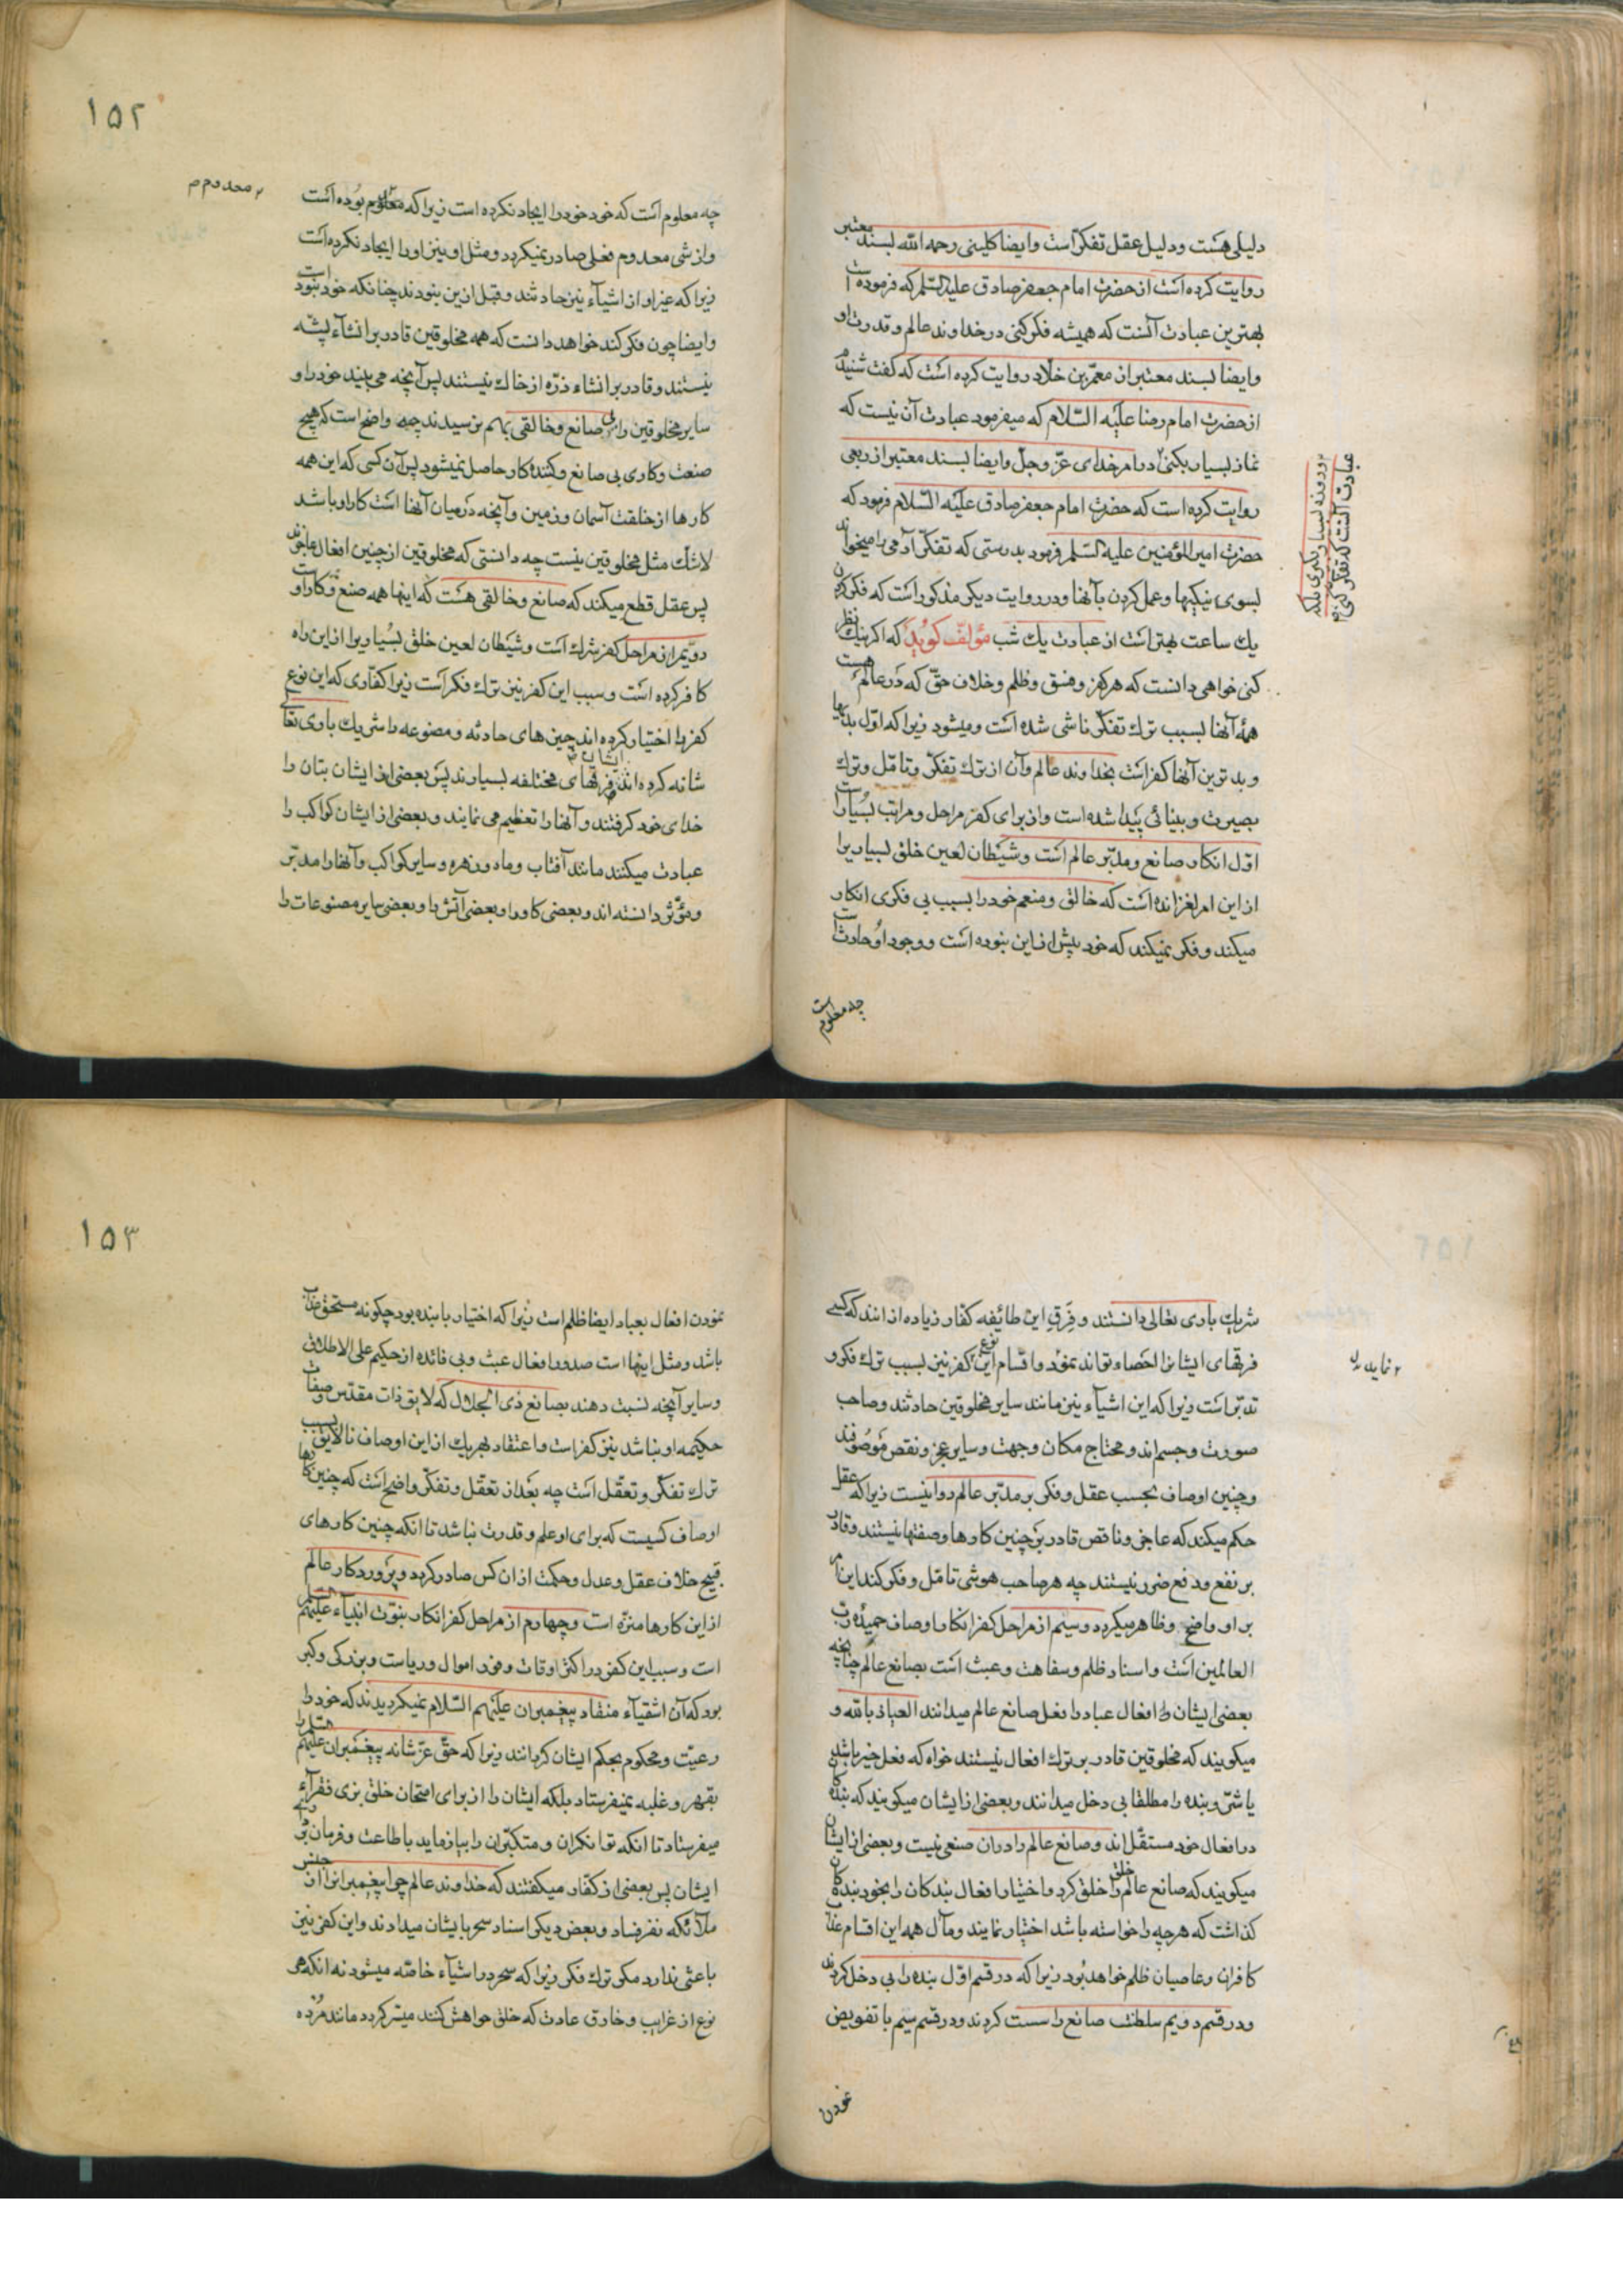 دلیلی هست ودلیل عقل تفکر است وایضا کلینی رحمه الله بسند معتبر
روایت کرده است از حضرت امام جعفر صادق علیه السلم که فرموده است
بهترین عبادت آنست که همیشه فکر کنی در خداوند عالم و قدرت او
وایضا بسند معتبر از معمر بن خلاد روایت کرده است که گفت شنیدم
از حضرت امام رضا علیه السلام که میفرمود عبادت آن نیست که
نماز بسیار بکنی در امر خدای عز وجل وایضا بسند معتبر از ربعی
وروزه بسیار بگیری بلکه
عبادت آنست که تفکر کنی
روایت کرده است که حضرت امام جعفر صادق علیه السلام فرمود که
حضرت امیر المؤمنین علیه السلم فرمود بدرستی که تفکر آدمی را میخواند
بسوی نیکیها وعمل کردن بآنها ودر روایت دیکر مذکور است که فکر کردن
یك ساعت بهتر است از عبادت یك شب مؤلف کوید که اکر نیك نظر
کنی خواهی دانست که هر کفر وفسق وظلم وخلاف حق که در عالم هست
همهٔ آنها بسبب ترك تفکر ناشی شده است ومیشود زیرا که اول بدیها
وبدترین آنها کفر است بخداوند عالم وآن از ترك تفکر وتامل وترك
بصیرت وبینائی پیدا شده است واز برای کفر مراحل ومراتب بسیار است
اول انکار صانع ومدبر عالم است وشیطان لعین خلق بسیاریرا
از این امر لغزانده است که خالق ومنعم خود را بسبب بی فکری انکار
میکند وفکر نمیکند که خود پیش از این نبوده است ووجود او حادث است
چه معلوم
۱۵۲
معدوم م
چه معلوم است که خود خود را ایجاد نکرده است زیرا که معلوم بوده است
واز شی معدوم فعلی صادر نمیکردد ومثل او نیز او را ایجاد نکرده است
زیرا که غیر او از اشیآء نیز حادثند وقبل ازین نبودند چنانکه خود نبوده است
وایضا چون فکر کند خواهد دانست که همه مخلوقین قادر بر انشآء پشه
نیستند وقادر بر انشاء ذره از خاك نیستند پس آنچه می بیند خود را و
سایر مخلوقین را بی صانع وخالقی بهم نرسیدند چه واضح است که هیچ
صنعت وکاری بی صانع وکننده کار حاصل نمیشود پس آن کسی که این همه
کارها از خلقت آسمان وزمین وآنچه در میان آنها است کار او باشد
لاشك مثل مخلوقین نیست چه دانستی که مخلوقین از چنین افعال عاجزند
پس عقل قطع میکند که صانع وخالقی هست که اینها همه صنع وکار اوست
دویم از مراحل کفر شرك است وشیطان لعین خلق بسیاریرا از این راه
کافر کرده است وسبب این کفر نیز ترك فکر است زیرا کفاری که این نوع
کفر را اختیار کرده اند چیزهای حادثه ومصنوعه را شریك باری تعالی
شانه کرده اند ایشان فرقهای مختلفه بسیارند پس بعضی از ایشان بتان را
خدای خود کرفتند وآنها را تعظیم می نمایند وبعضی از ایشان کواکب را
عبادت میکنند مانند آفتاب وماه وزهره وسایر کواکب وآنها را مدبر
ومؤثر دانسته اند وبعضی کاو را وبعضی آتش را وبعضی سایر مصنوعات را
شریك باری تعالی دانستند وفرق این طائفه کفار زیاده از انند که کسی
فرقهای ایشانرا احصاء تواند نمود واقسام این نوع کفر نیز بسبب ترك فکر و
نماید
تدبر است زیرا که این اشیآء نیز مانند سایر مخلوقین حادثند وصاحب
صورت وجسم اند ومحتاج مکان وجهت وسایر عجز ونقص موصوفند
وچنین اوصاف بحسب عقل وفکر بر مدبر عالم روا نیست زیرا که عقل
حکم میکند که عاجز وناقص قادر بر چنین کارها وصفتها نیستند وقادر
بر نفع ودفع ضرر نیستند چه هر صاحب هوشی تامل وفکر کند این امر
بر او واضح وظاهر میکردد وسیم از مراحل کفر انکار اوصاف حمیدهٔ رب
العالمین است واسناد ظلم وسفاهت وعبث است بصانع عالم چنانچه
بعضی ایشان افعال عباد را فعل صانع عالم میدانند العیاذ بالله و
میکویند که مخلوقین قادر بر ترك افعال نیستند خواه که فعل خیر باشد
یا شر وبنده را مطلقا بی دخل میدانند وبعضی از ایشان میکویند که بندگان
در افعال خود مستقل اند وصانع عالم را در ان صنعی نیست وبعضی از ایشان
میکویند که صانع عالم خلق را خلق کرد واختیار افعال بندکان را بخود بندگان
کذاشت که هر چه را خواسته باشد اختیار نمایند ومآل همه این اقسام
کافران وعاصیان ظلم خواهد بود زیرا که در قسم اول بنده را بی دخل کردند
ودر قسم دویم سلطنت صانع را سست کردند ودر قسم سیم با تفویض
نمودن
۱۵۳
نمودن افعال بعباد ایضا ظلم است زیرا که اختیار با بنده بود چکونه مستحق عذاب
باشد ومثل اینها است صدور افعال عبث وبی فائده از حکیم علی الاطلاق
وسایر آنچه نسبت دهند بصانع ذی الجلال که لایق ذات مقدس وصفات
حکیمه او نباشد نیز کفر است واعتقاد بهر یك از این اوصاف نالایق بسبب
ترك تفکر وتعقل است چه بعد از تعقل وتفکر واضح است که چنین کارها
اوصاف کسیست که برای او علم وقدرت نباشد تا انکه چنین کارهای
قبیح خلاف عقل وعدل وحکمت از ان کس صادر کردد وپروردکار عالم
از این کارها منزه است وچهارم از مراحل کفر انکار نبوت انبیآء علیهم السلم
است وسبب این کفر در اکثر اوقات وفور اموال وریاست وبزرکی وکبر
بود که آن اشقیآء منقاد پیغمبران علیهم السلام نمیکردیدند که خود را
رعیت ومحکوم بحکم ایشان کردانند زیرا که حق عز شانه پیغمبران علیهم السلم را
بقهر وغلبه نمیفرستاد بلکه ایشان را از برای امتحان خلق بزی فقرآء
میفرستاد تا انکه توانکران ومتکبران را بیازماید باطاعت وفرمان بری
ایشان پس بعضی از کفار میکفتند که خداوند عالم چرا پیغمبرانرا از جنس
ملآئکه نفرستاد وبعض دیکر اسناد سحر بایشان میدادند واین کفر نیز
باعثی ندارد مکر ترك فکر زیرا که سحر در اشیآء خاصه میشود نه انکه هر
نوع از غرایب وخارق عادت که خلق خواهش کنند میسر کردد مانند مرده